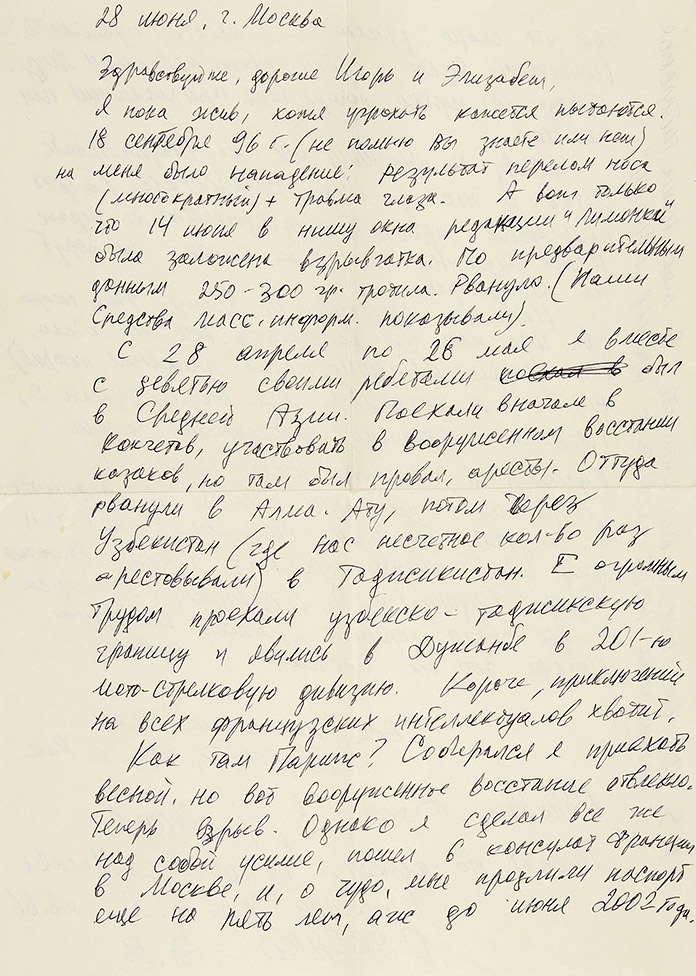 28 июня, г. Москва
Здравствуйте, дорогие Игорь и Элизабет,
Я пока жив, хотя угрохать кажется пытаются.
18 сентября 96 г. (не помню Вы знаете или нет)
на меня было нападение: результат перелом носа
(многократный) + травма глаза. А вот только
что 14 июня в нишу окна редакции "Лимонки"
была заложена взрывчатка. По предварительным
данным 250-300 гр. тротила. Рвануло. (Наши
Средства масс. информ. показывали).
С 28 апреля по 26 мая я вместе
с девятью своими ребятами поехал в был
в Средней Азии. Поехали вначале в
Кокчетав, участвовать в вооруженном восстании
казаков, но там был провал, аресты. Оттуда
рванули в Алма-Ату, потом через
Узбекистан (где нас несчетное кол-во раз
арестовывали) в Таджикистан. С огромным
трудом проехали узбекско-таджикскую
границу и явились в Душанбе в 201-ю
мото-стрелковую дивизию. Короче, приключений
на всех французских интеллектуалов хватит.
Как там Париж? Собирался я приехать
весной, но вот вооруженное восстание отвлекло.
Теперь взрыв. Однако я сделал все же
над собой усилие, пошел в консулат Франции
в Москве, и, о чудо, мне продлили паспорт
еще на пять лет, аж до июня 2002 года.